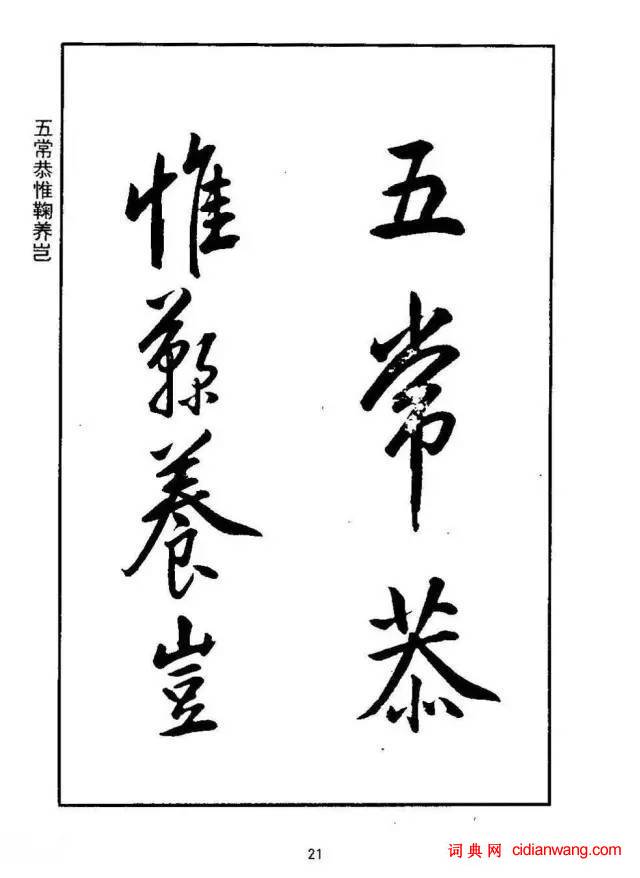 五常恭
惟鞠養豈
五常恭惟鞠养岂
21
词典网 cidianwang.com